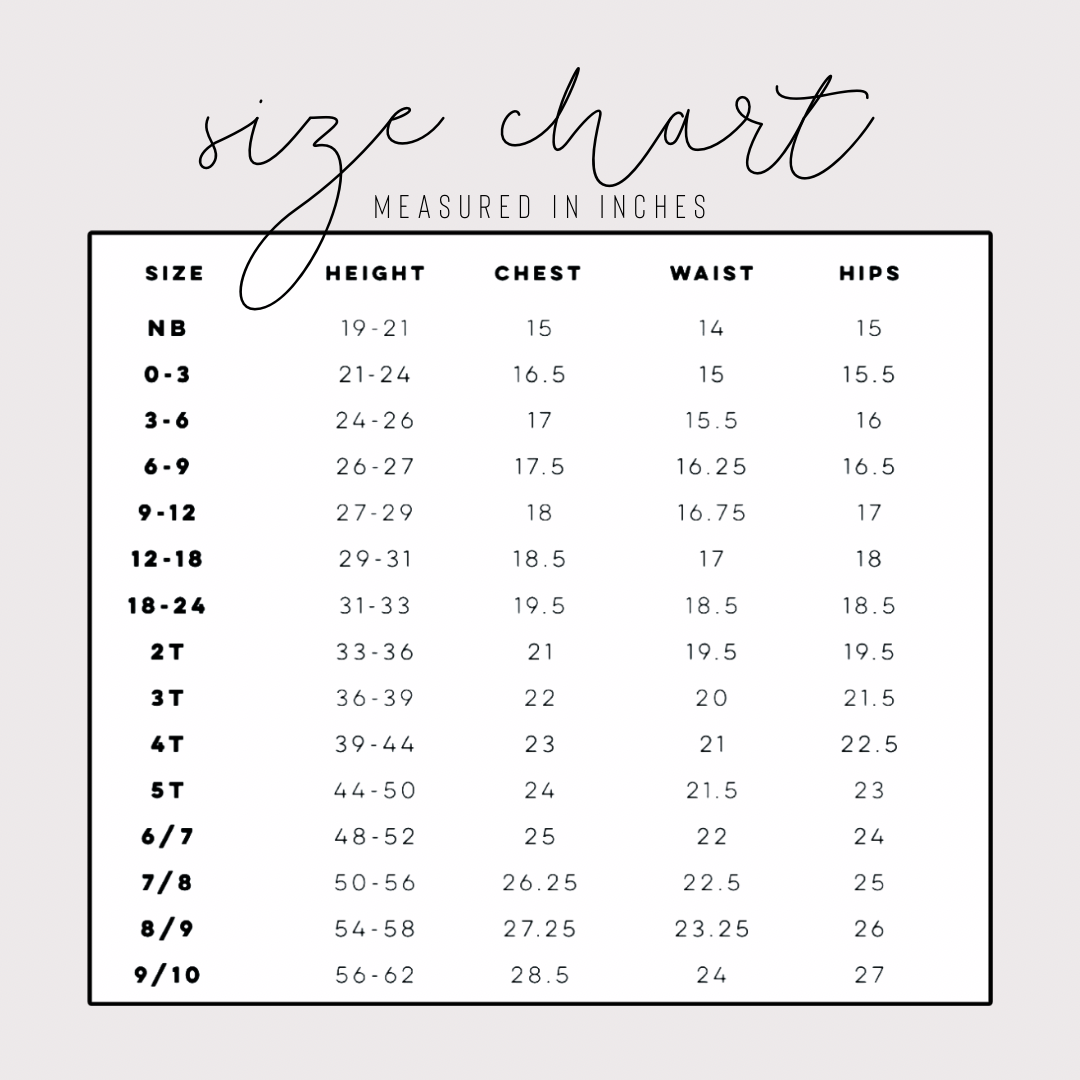 size chart
MEASURED IN INCHES
SIZE HEIGHT CHEST WAIST HIPS
NB 19-21 15 14 15
0-3 21-24 16.5 15 15.5
3-6 24-26 17 15.5 16
6-9 26-27 17.5 16.25 16.5
9-12 27-29 18 16.75 17
12-18 29-31 18.5 17 18
18-24 31-33 19.5 18.5 18.5
2T 33-36 21 19.5 19.5
3T 36-39 22 20 21.5
4T 39-44 23 21 22.5
5T 44-50 24 21.5 23
6/7 48-52 25 22 24
7/8 50-56 26.25 22.5 25
8/9 54-58 27.25 23.25 26
9/10 56-62 28.5 24 27